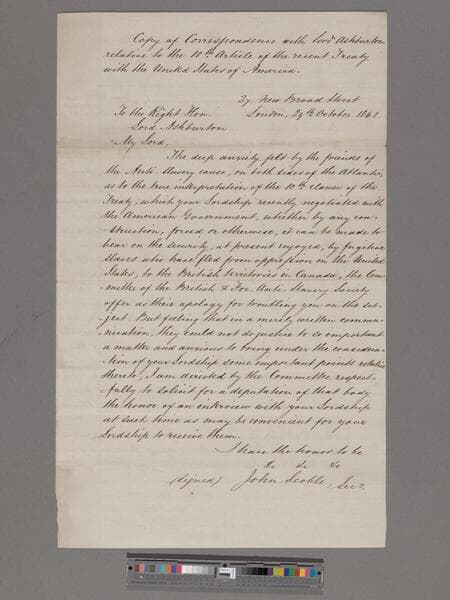 Copy of Correspondence with Lord Ashburton
relative to the 10th Article of the recent Treaty
with the United States of America.
27. New Broad Street
To the Right Hon. London, 29th October 1842
Lord Ashburton
My Lord,
The deep anxiety felt by the friends of
the Anti-Slavery cause, on both sides of the Atlantic,
as to the true interpretation of the 10th clause of the
Treaty, which your Lordship recently negotiated with
the American Government, whether by any con-
struction, forced or otherwise, it can be made to
bear on the security, at present enjoyed, by fugitive
slaves who have fled from oppression in the United
States, to the British territories in Canada, the Com-
mittee of the British & For. Anti-Slavery Society
offer as their apology for troubling you on the sub-
ject. But feeling that in a merely written commu-
nication, they could not do justice to so important
a matter and anxious to bring under the considera-
tion of your Lordship some important points relative
thereto, I am directed by the Committee respect-
-fully to solicit for a deputation of that body
the honor of an interview with your Lordship
at such time as may be convenient for your
Lordship to receive them.
I have the honor to be
&c &c &c
(Signed) John Scoble, Secy.